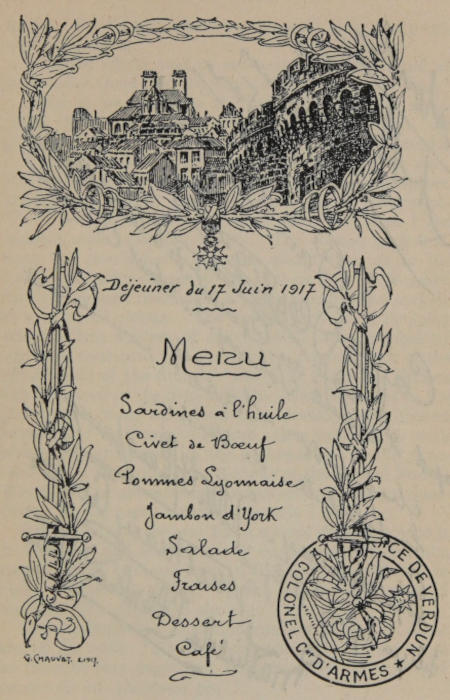 Déjeûner du 17 Juin 1917
Menu
Sardines à l'huile
Civet de Bœuf
Pommes Lyonnaise
Jambon d'York
Salade
Fraises
Dessert
Café
G. CHAUVET. 2.1917.
CE DE VERDUN
COLONEL Ct D'ARMES